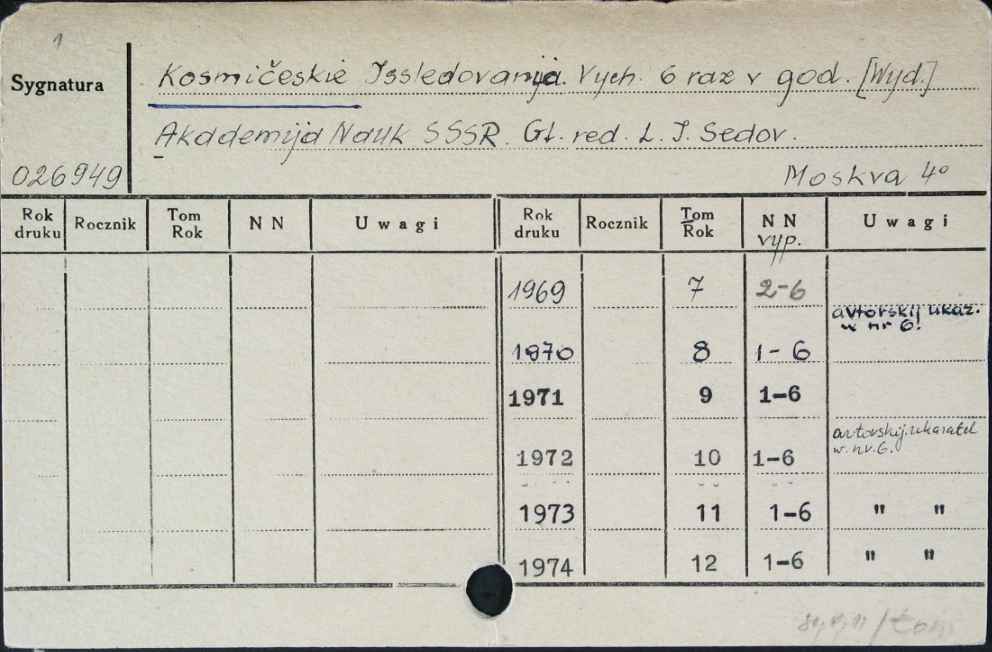 1
Sygnatura
Kosmičeskie Issledovanija. Vych. 6 raz v god. [Wyd.]
Akademija Nauk SSSR. Gł. red. L. I. Sedov.
026949
Moskva 4°
Rok druku Rocznik Tom Rok N N Uwagi Rok druku Rocznik Tom Rok N N vyp. Uwagi
1969 7 2-6
avtorskij ukaz. w nr 6.
1970 8 1-6
1971 9 1-6
avtorskij ukazatel w. nr. 6.
1972 10 1-6
1973 11 1-6 " "
1974 12 1-6 " "